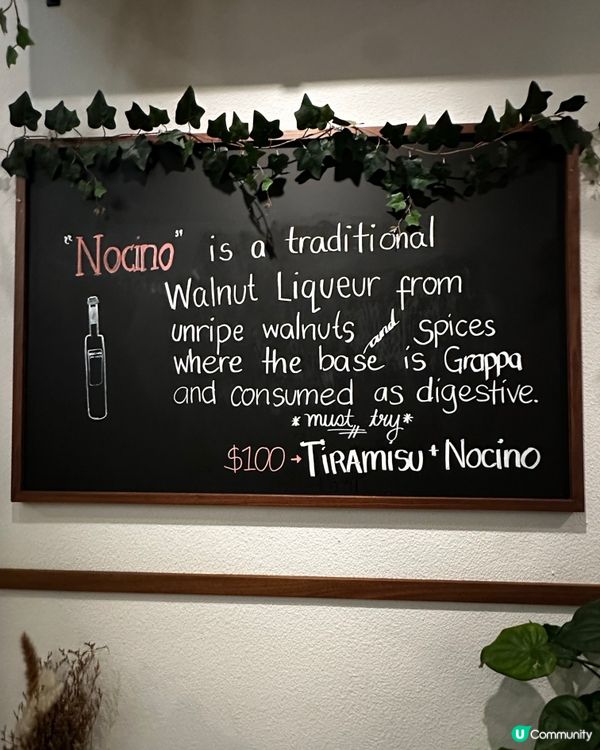 "Nocino" is a traditional
Walnut Liqueur from
unripe walnuts and spices
where the base is Grappa
and consumed as digestive.
*must try*
$100 → TIRAMISU + NOCINO
U Community